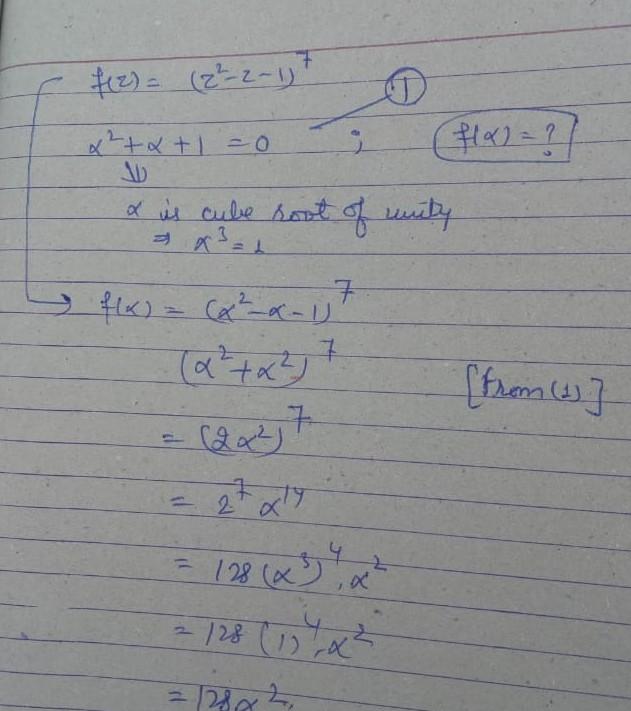 f(z) = (z²-z-1)⁷
①
α²+α+1 = 0 ; f(α) = ?
⇓
α is cube root of unity
⇒ α³=1
f(α) = (α²-α-1)⁷
(α²+α²)⁷ [from (1)]
= (2α²)⁷
= 2⁷ α¹⁴
= 128 (α³)⁴.α²
= 128 (1)⁴.α²
= 128α².